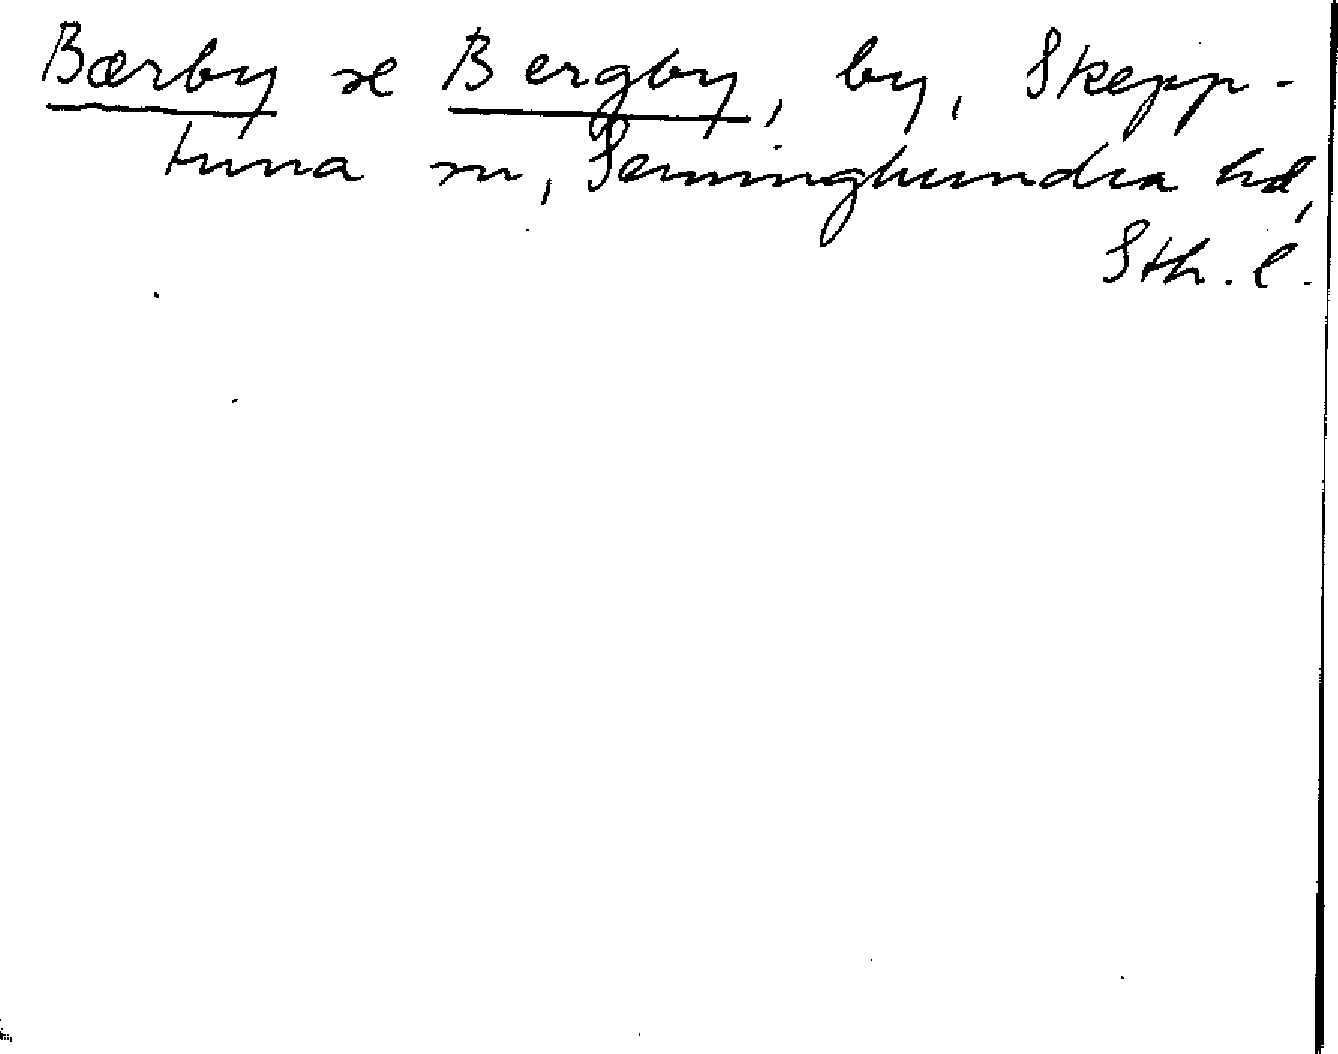 Bærby se Bergby, by, Skepp-
tuna sn, Seminghundra hd,
Sth. l.